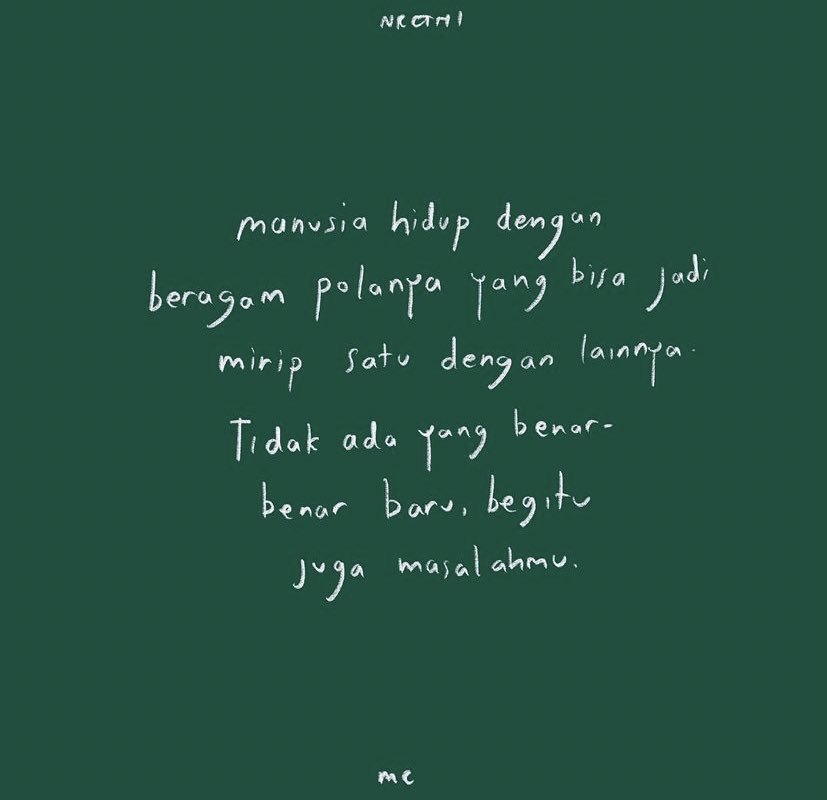 NKCTHI
manusia hidup dengan
beragam polanya yang bisa jadi
mirip satu dengan lainnya.
Tidak ada yang benar-
benar baru, begitu
juga masalahmu.
me